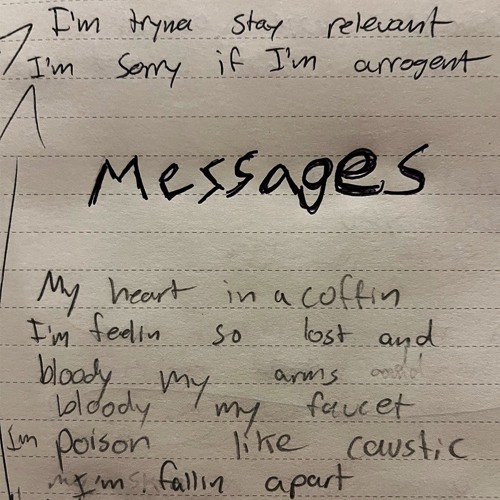 I'm tryna stay relevant
I'm sorry if I'm arrogent
Messages
My heart in a coffin
I'm feelin so lost and
bloody my arms
bloody my faucet
I'm poison like caustic
I'm fallin apart